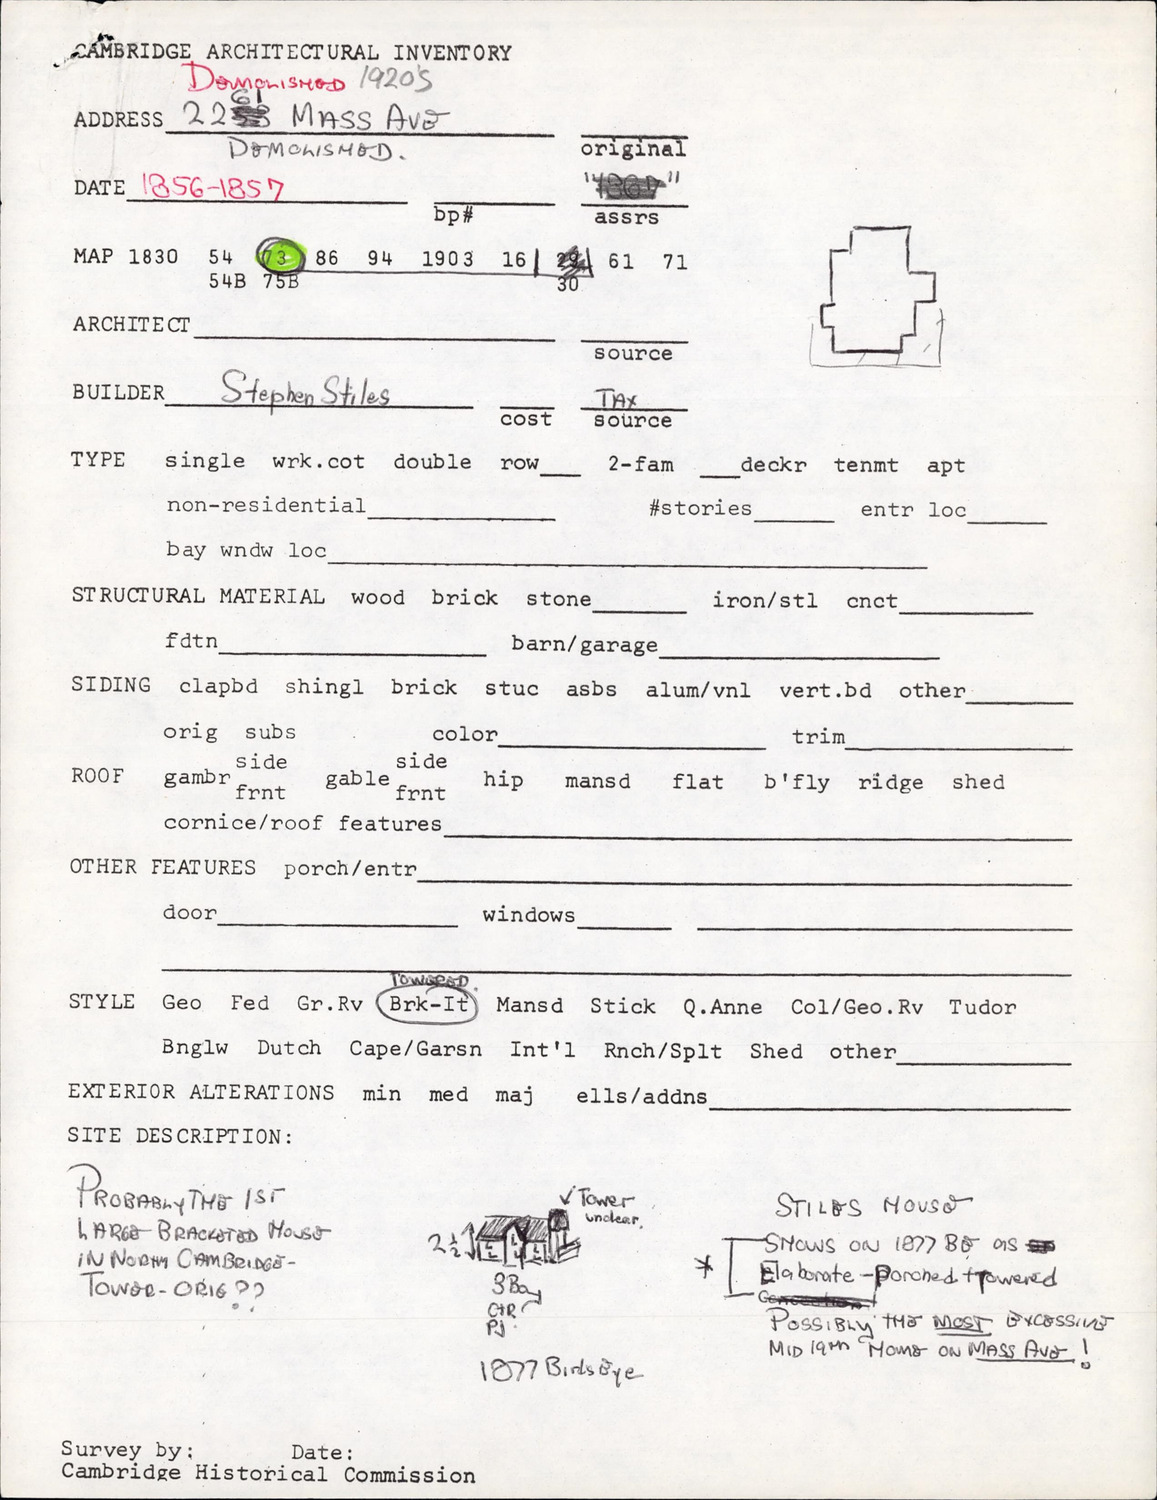 CAMBRIDGE ARCHITECTURAL INVENTORY
DEMOLISHED 1920'S
ADDRESS 2261 MASS AVE
DEMOLISHED.
original
DATE 1856-1857
bp#
assrs
MAP 1830 54 73 86 94 1903 16 29 61 71
54B 75B 30
ARCHITECT
source
BUILDER Stephen Stiles TAX
cost source
TYPE single wrk.cot double row 2-fam deckr tenmt apt
non-residential #stories entr loc
bay wndw loc
STRUCTURAL MATERIAL wood brick stone iron/stl cnct
fdtn barn/garage
SIDING clapbd shingl brick stuc asbs alum/vnl vert.bd other
orig subs color trim
side side
ROOF gambr gable hip mansd flat b'fly ridge shed
frnt frnt
cornice/roof features
OTHER FEATURES porch/entr
door windows
TOWERED
STYLE Geo Fed Gr.Rv Brk-It Mansd Stick Q.Anne Col/Geo.Rv Tudor
Bnglw Dutch Cape/Garsn Int'l Rnch/Splt Shed other
EXTERIOR ALTERATIONS min med maj ells/addns
SITE DESCRIPTION:
PROBABLY THE 1ST
LARGE BRACKETED HOUSE
IN NORTH CAMBRIDGE-
TOWER-ORIG??
Tower
unclear.
2½
3 Bay
CTR
PJ.
1877 Birds Eye
STILES HOUSE
* SHOWS ON 1877 BE AS
Elaborate-porched + towered
POSSIBLY THE MOST EXCESSIVE
MID 19TH HOME ON MASS AVE!
Survey by: Date:
Cambridge Historical Commission